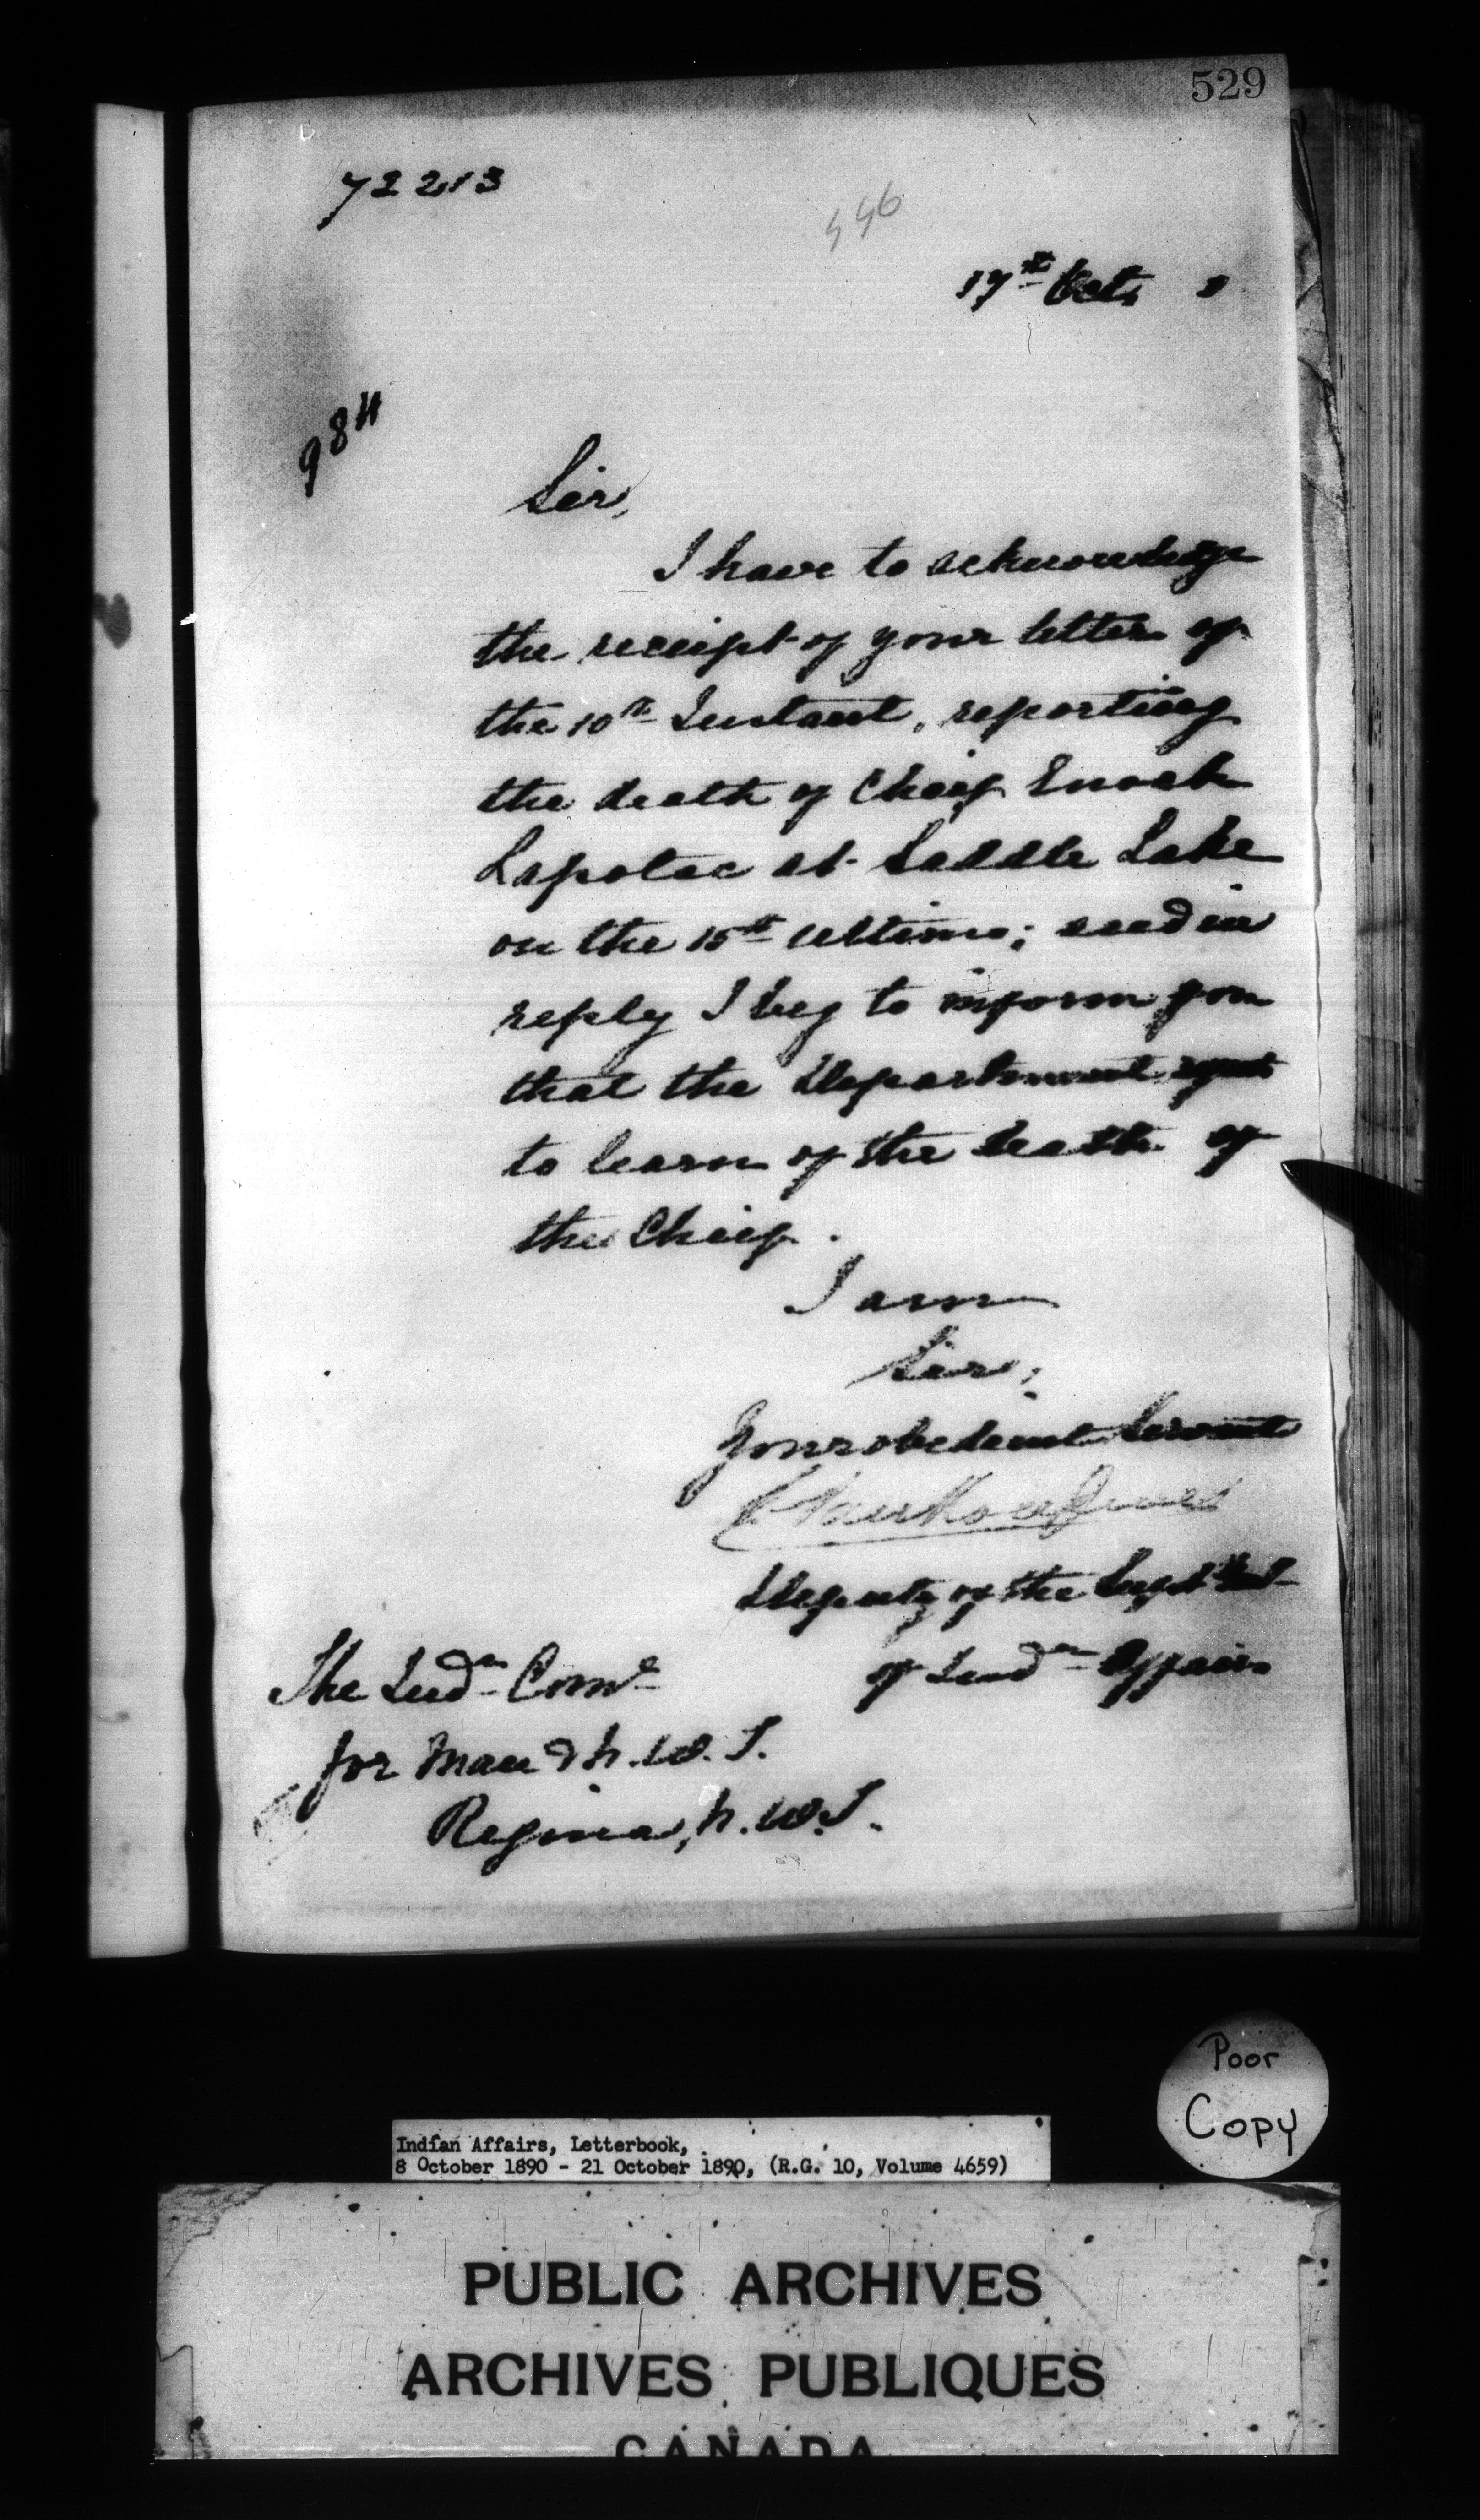 529
72213
446
17th Oct.
984
Sir,
I have to acknowledge
the receipt of your letter of
the 10th Instant, reporting
the death of Chief Enoch
Lapotac at Saddle Lake
on the 15th ultimo; and in
reply I beg to inform you
that the Department regrets
to learn of the death of
the Chief.
I am
Sir,
Your obedient Servant
Deputy of the Supt Genl
of Indn Affairs
The Indn Comr
for Man & N.W.T.
Regina, N.W.T.
Poor
Copy
Indian Affairs, Letterbook,
8 October 1890 - 21 October 1890, (R.G. 10, Volume 4659)
PUBLIC ARCHIVES
ARCHIVES PUBLIQUES
CANADA